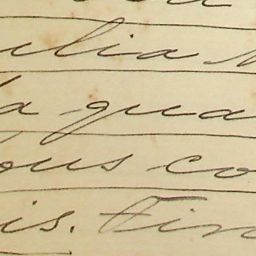 ulia
a qua
ous co
is. Fin